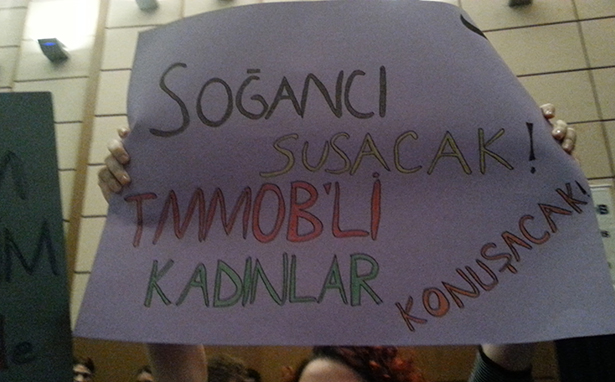 SOĞANCI
SUSACAK!
TMMOB'Lİ
KADINLAR
KONUŞACAK!